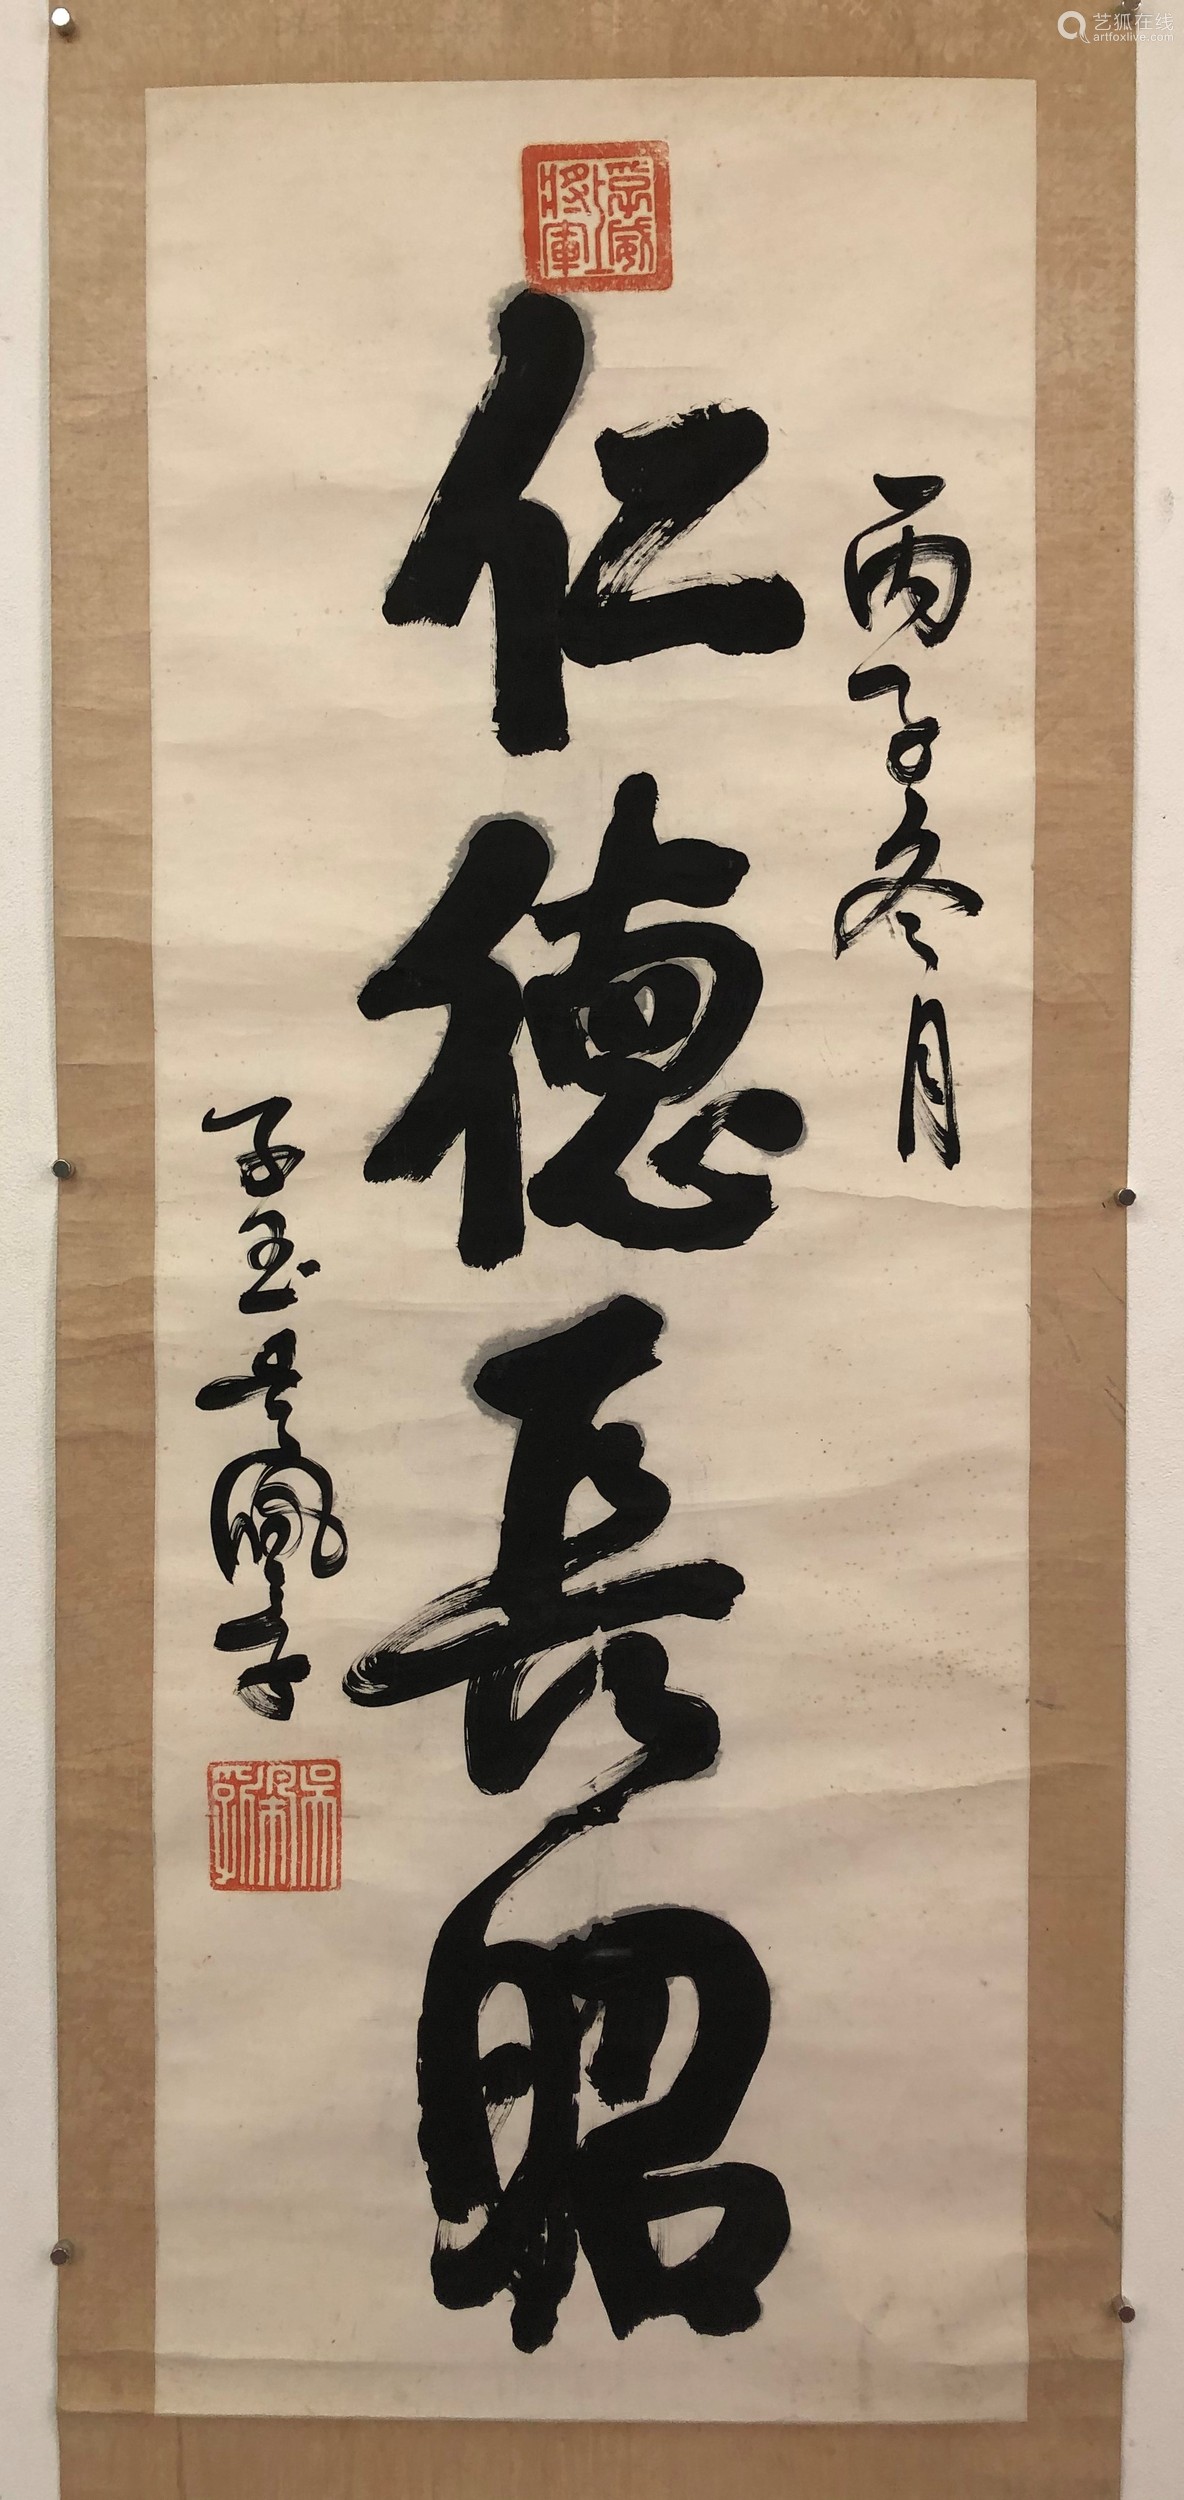 艺狐在线
artfoxlive.com
丙子冬月
孚威上將軍
仁德長昭
子玉吳佩孚